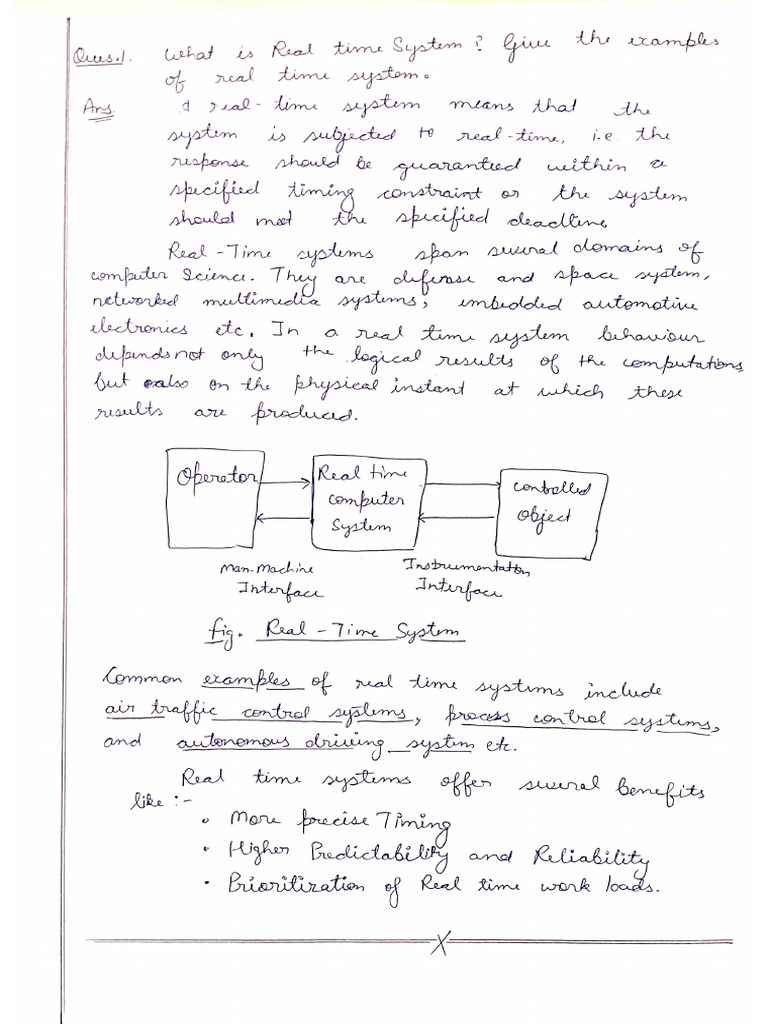 Ques.1. What is Real time System? Give the examples
of real time system.
Ans. A real-time system means that the
system is subjected to real-time, i.e the
response should be guaranteed within a
specified timing constraint or the system
should meet the specified deadline.
Real-Time systems span several domains of
computer Science. They are defense and space system,
networked multimedia systems, embedded automotive
electronics etc. In a real time system behaviour
depends not only the logical results of the computations
but also on the physical instant at which these
results are produced.
Operator
Real time
computer
System
Controlled
Object
Man-Machine
Interface
Instrumentation
Interface
fig. Real-Time System
Common examples of real time systems include
air traffic control systems, process control systems,
and autonomous driving system etc.
Real time systems offer several benefits
like :-
• More precise Timing
• Higher Predictability and Reliability
• Prioritization of Real time work loads.
X